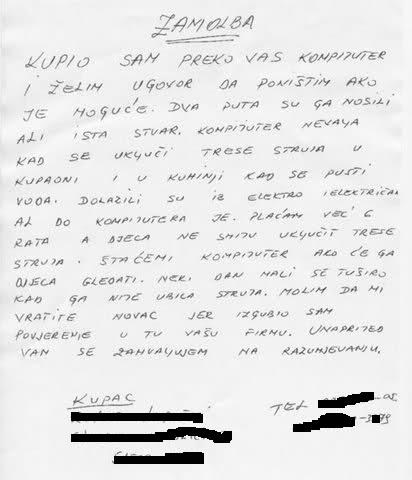 ZAMOLBA
KUPIO SAM PREKO VAS KOMPJUTER
I ŽELIM UGOVOR DA PONIŠTIM AKO
JE MOGUĆE. DVA PUTA SU GA NOSILI
ALI ISTA STVAR. KOMPJUTER NEVAJA
KAD SE UKLJUČI TRESE STRUJA U
KUPAONI I U KUHINJI KAD SE PUSTI
VODA. DOLAZILI SU IZ ELEKTRO I ELEKTRIČAR
AL DO KOMPJUTERA JE. PLAĆAM VEĆ 6
RATA A DJECA NE SMIJU UKLJUČIT TRESE
STRUJA. ŠTAĆEMI KOMPJUTER AKO ĆE GA
DJECA GLEDATI. NEKI DAN MALI SE TUŠIRO
KAD GA NIJE UBILA STRUJA. MOLIM DA MI
VRATITE NOVAC JER IZGUBIO SAM
POVJERENJE U TU VAŠU FIRMU. UNAPRIJED
VAM SE ZAHVALJUJEM NA RAZUMJEVANJU.
KUPAC
TEL